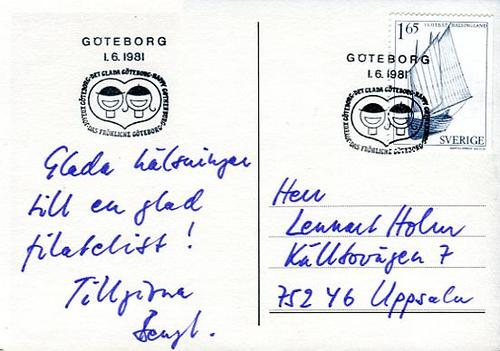 GÖTEBORG
1.6.1981
GÖTEBORG·DET GLADA GÖTEBORG·HAPPY GOTHENBURG·DAS FRÖHLICHE GÖTEBORG
Glada hälsningar
till en glad
filatelist!
Tillgivna
Bengt.
GÖTEBORG
1.6.1981
GÖTEBORG·DET GLADA GÖTEBORG·HAPPY
DAS FRÖHLICHE GÖTEBORG
165
SVERIGE
Herr
Lennart Holm
Källtovägen 7
752 46 Uppsala